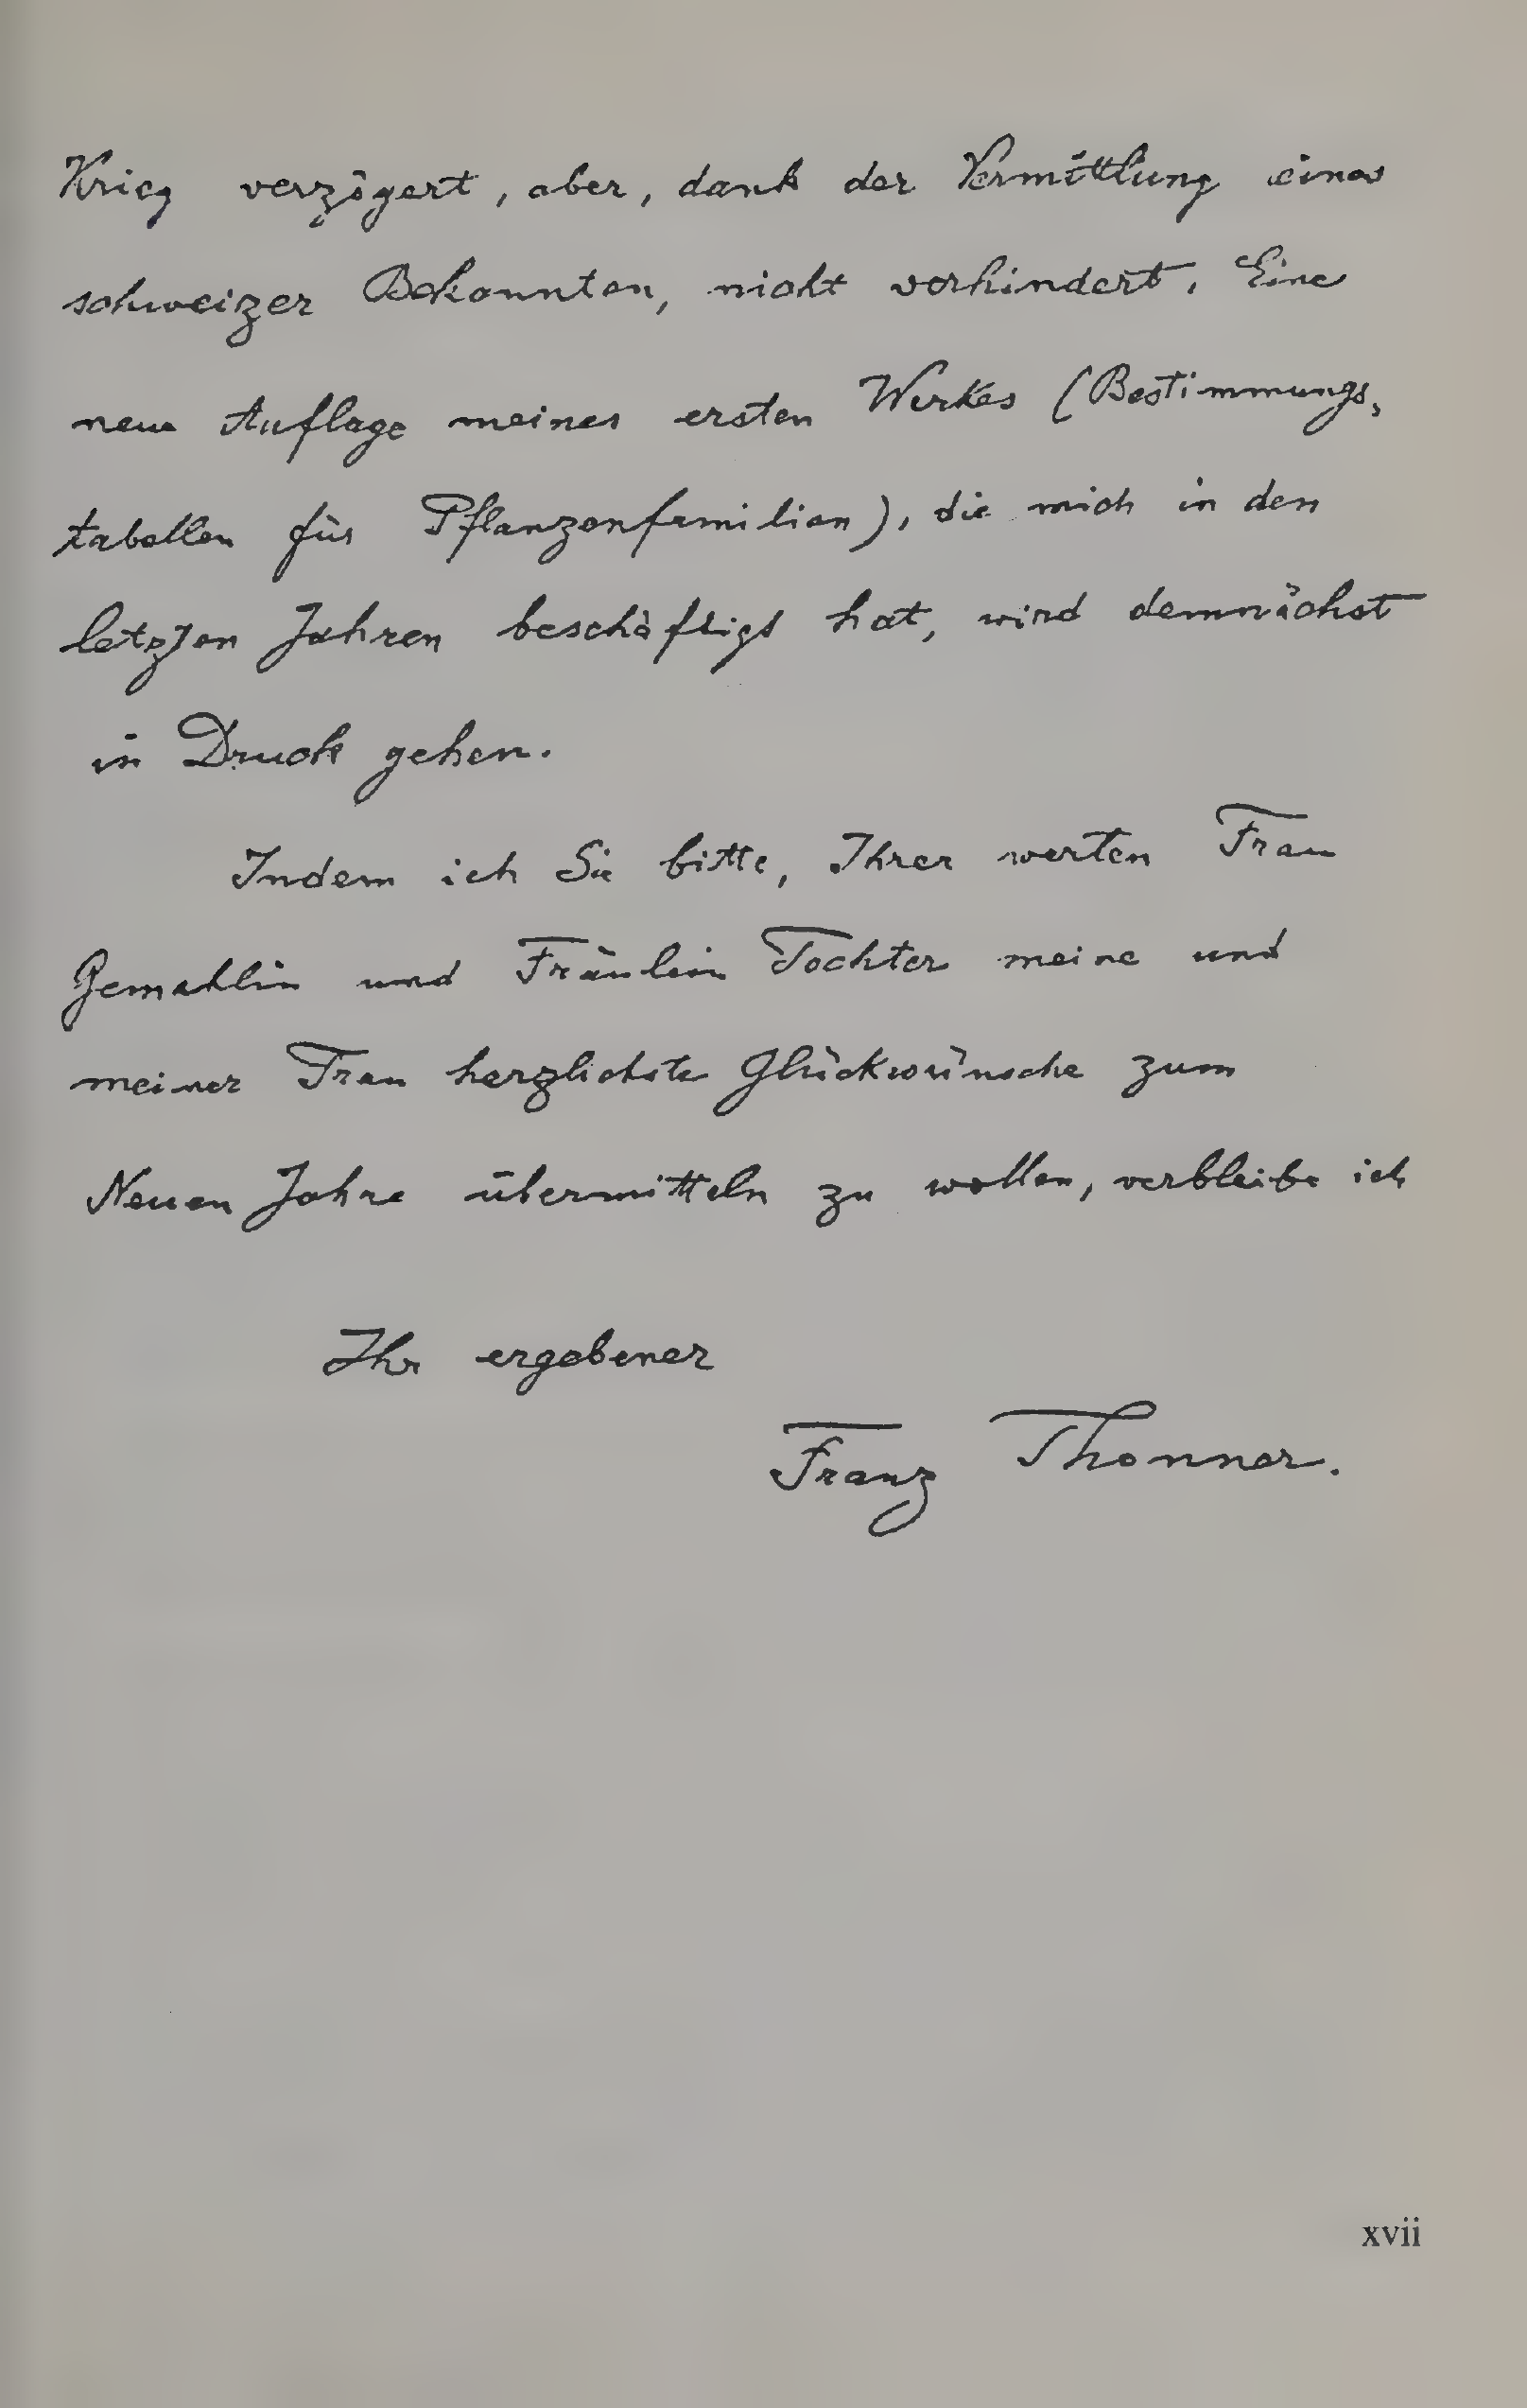 Krieg verzögert, aber, dank der Vermittlung eines
schweizer Bekannten, nicht verhindert. Eine
neue Auflage meines ersten Werkes (Bestimmungs-
tabellen für Pflanzenfamilien), die mich in den
letzten Jahren beschäftigt hat, wird demnächst
in Druck gehen.
Indem ich Sie bitte, Ihrer werten Frau
Gemahlin und Fräulein Tochter meine und
meiner Frau herzlichste Glückwünsche zum
Neuen Jahre übermitteln zu wollen, verbleibe ich
Ihr ergebener
Franz Thonner.
xvii